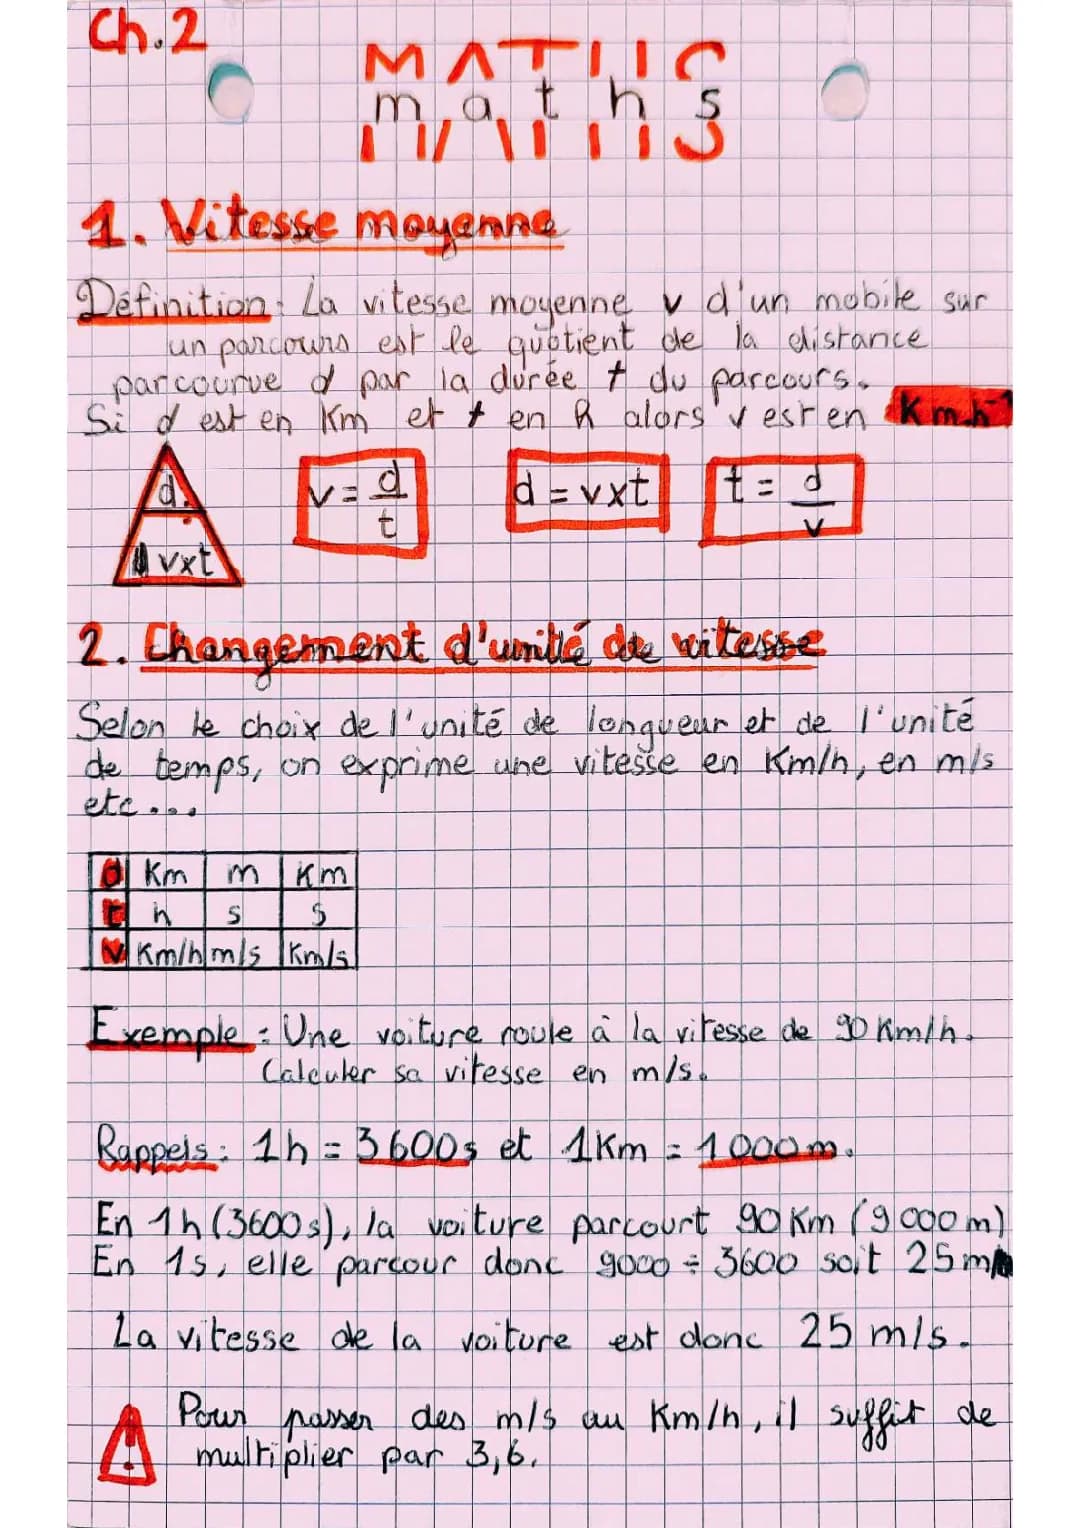 Ch.2
MATHS
maths
MATHS
1. Vitesse moyenne
Définition: La vitesse moyenne v d'un mobile sur
un parcours est le quotient de la distance
parcourue d par la durée t du parcours.
Si d est en Km et t en h alors v est en Km.h⁻¹
d
vxt
v = d/t
d = vxt
t = d/v
2. Changement d'unité de vitesse
Selon le choix de l'unité de longueur et de l'unité
de temps, on exprime une vitesse en Km/h, en m/s
etc...
d Km m Km
t h s s
v Km/h m/s Km/s
Exemple : Une voiture roule à la vitesse de 90 Km/h.
Calculer sa vitesse en m/s.
Rappels : 1h = 3600s et 1Km = 1000m.
En 1h (3600s), la voiture parcourt 90 Km (9000m)
En 1s, elle parcour donc 9000 ÷ 3600 soit 25m
La vitesse de la voiture est donc 25 m/s.
Pour passer des m/s au Km/h, il suffit de
multiplier par 3,6.